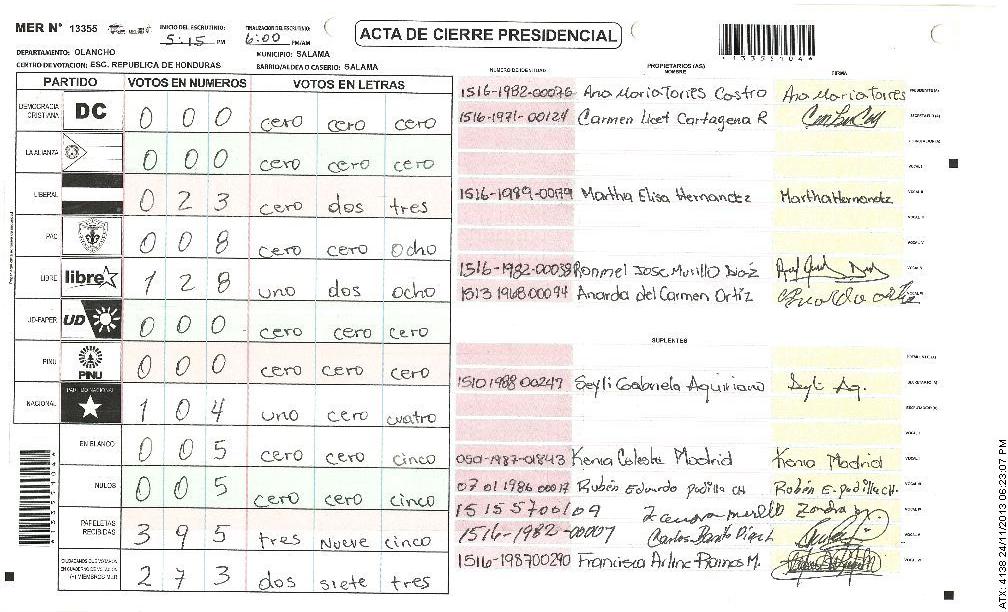 MER N° 13355
INICIO DEL ESCRUTINIO: 5:15 PM
FINALIZACION DEL ESCRUTINIO: 6:00 PM/AM
ACTA DE CIERRE PRESIDENCIAL
13355104A
DEPARTAMENTO: OLANCHO
MUNICIPIO: SALAMA
CENTRO DE VOTACION: ESC. REPUBLICA DE HONDURAS
BARRIO/ALDEA O CASERIO: SALAMA
PARTIDO VOTOS EN NUMEROS VOTOS EN LETRAS
DEMOCRACIA CRISTIANA DC 0 0 0 cero cero cero
LA ALIANZA 0 0 0 cero cero cero
LIBERAL 0 2 3 cero dos tres
PAC 0 0 8 cero cero ocho
LIBRE libre 1 2 8 uno dos ocho
UD-FAPER UD 0 0 0 cero cero cero
PINU PINU 0 0 0 cero cero cero
NACIONAL PARTIDO NACIONAL 1 0 4 uno cero cuatro
EN BLANCO 0 0 5 cero cero cinco
NULOS 0 0 5 cero cero cinco
PAPELETAS RECIBIDAS 3 9 5 tres nueve cinco
CIUDADANOS QUE VOTARON EN CUADERNO DE VOTACION (+) MIEMBROS MER 2 7 3 dos siete tres
NUMERO DE IDENTIDAD PROPIETARIOS (AS) NOMBRE FIRMA
1516-1982-00076 Ana Maria Torres Castro Ana Maria Torres PRESIDENTE (A)
1516-1971-00124 Carmen Licet Cartagena R SECRETARIO (A)
ESCRUTADOR (A)
VOCAL I
1516-1989-00179 Martha Elisa Hernandez Martha Hernandez VOCAL II
VOCAL III
VOCAL IV
1516-1982-00038 Ronmel Jose Murillo Diaz VOCAL V
1513 1968 00094 Anarda del Carmen Ortiz VOCAL VI
SUPLENTES
PRESIDENTE (A)
1510 1988 00247 Seyli Gabriela Aquiriano Seyli Aq. SECRETARIO (A)
ESCRUTADOR (A)
VOCAL I
1987-01843 Kenia Celeste Madrid Kenia Madrid VOCAL II
0701 1986 00017 Rubén Eduardo Padilla CH Rubén E. Padilla CH. VOCAL III
15155700109 VOCAL IV
1516-1982-00007 Carlos VOCAL V
1516-198700290 Francisca Arline Ramos M. VOCAL VI
ATX 4138 24/11/2013 06:23:07 PM